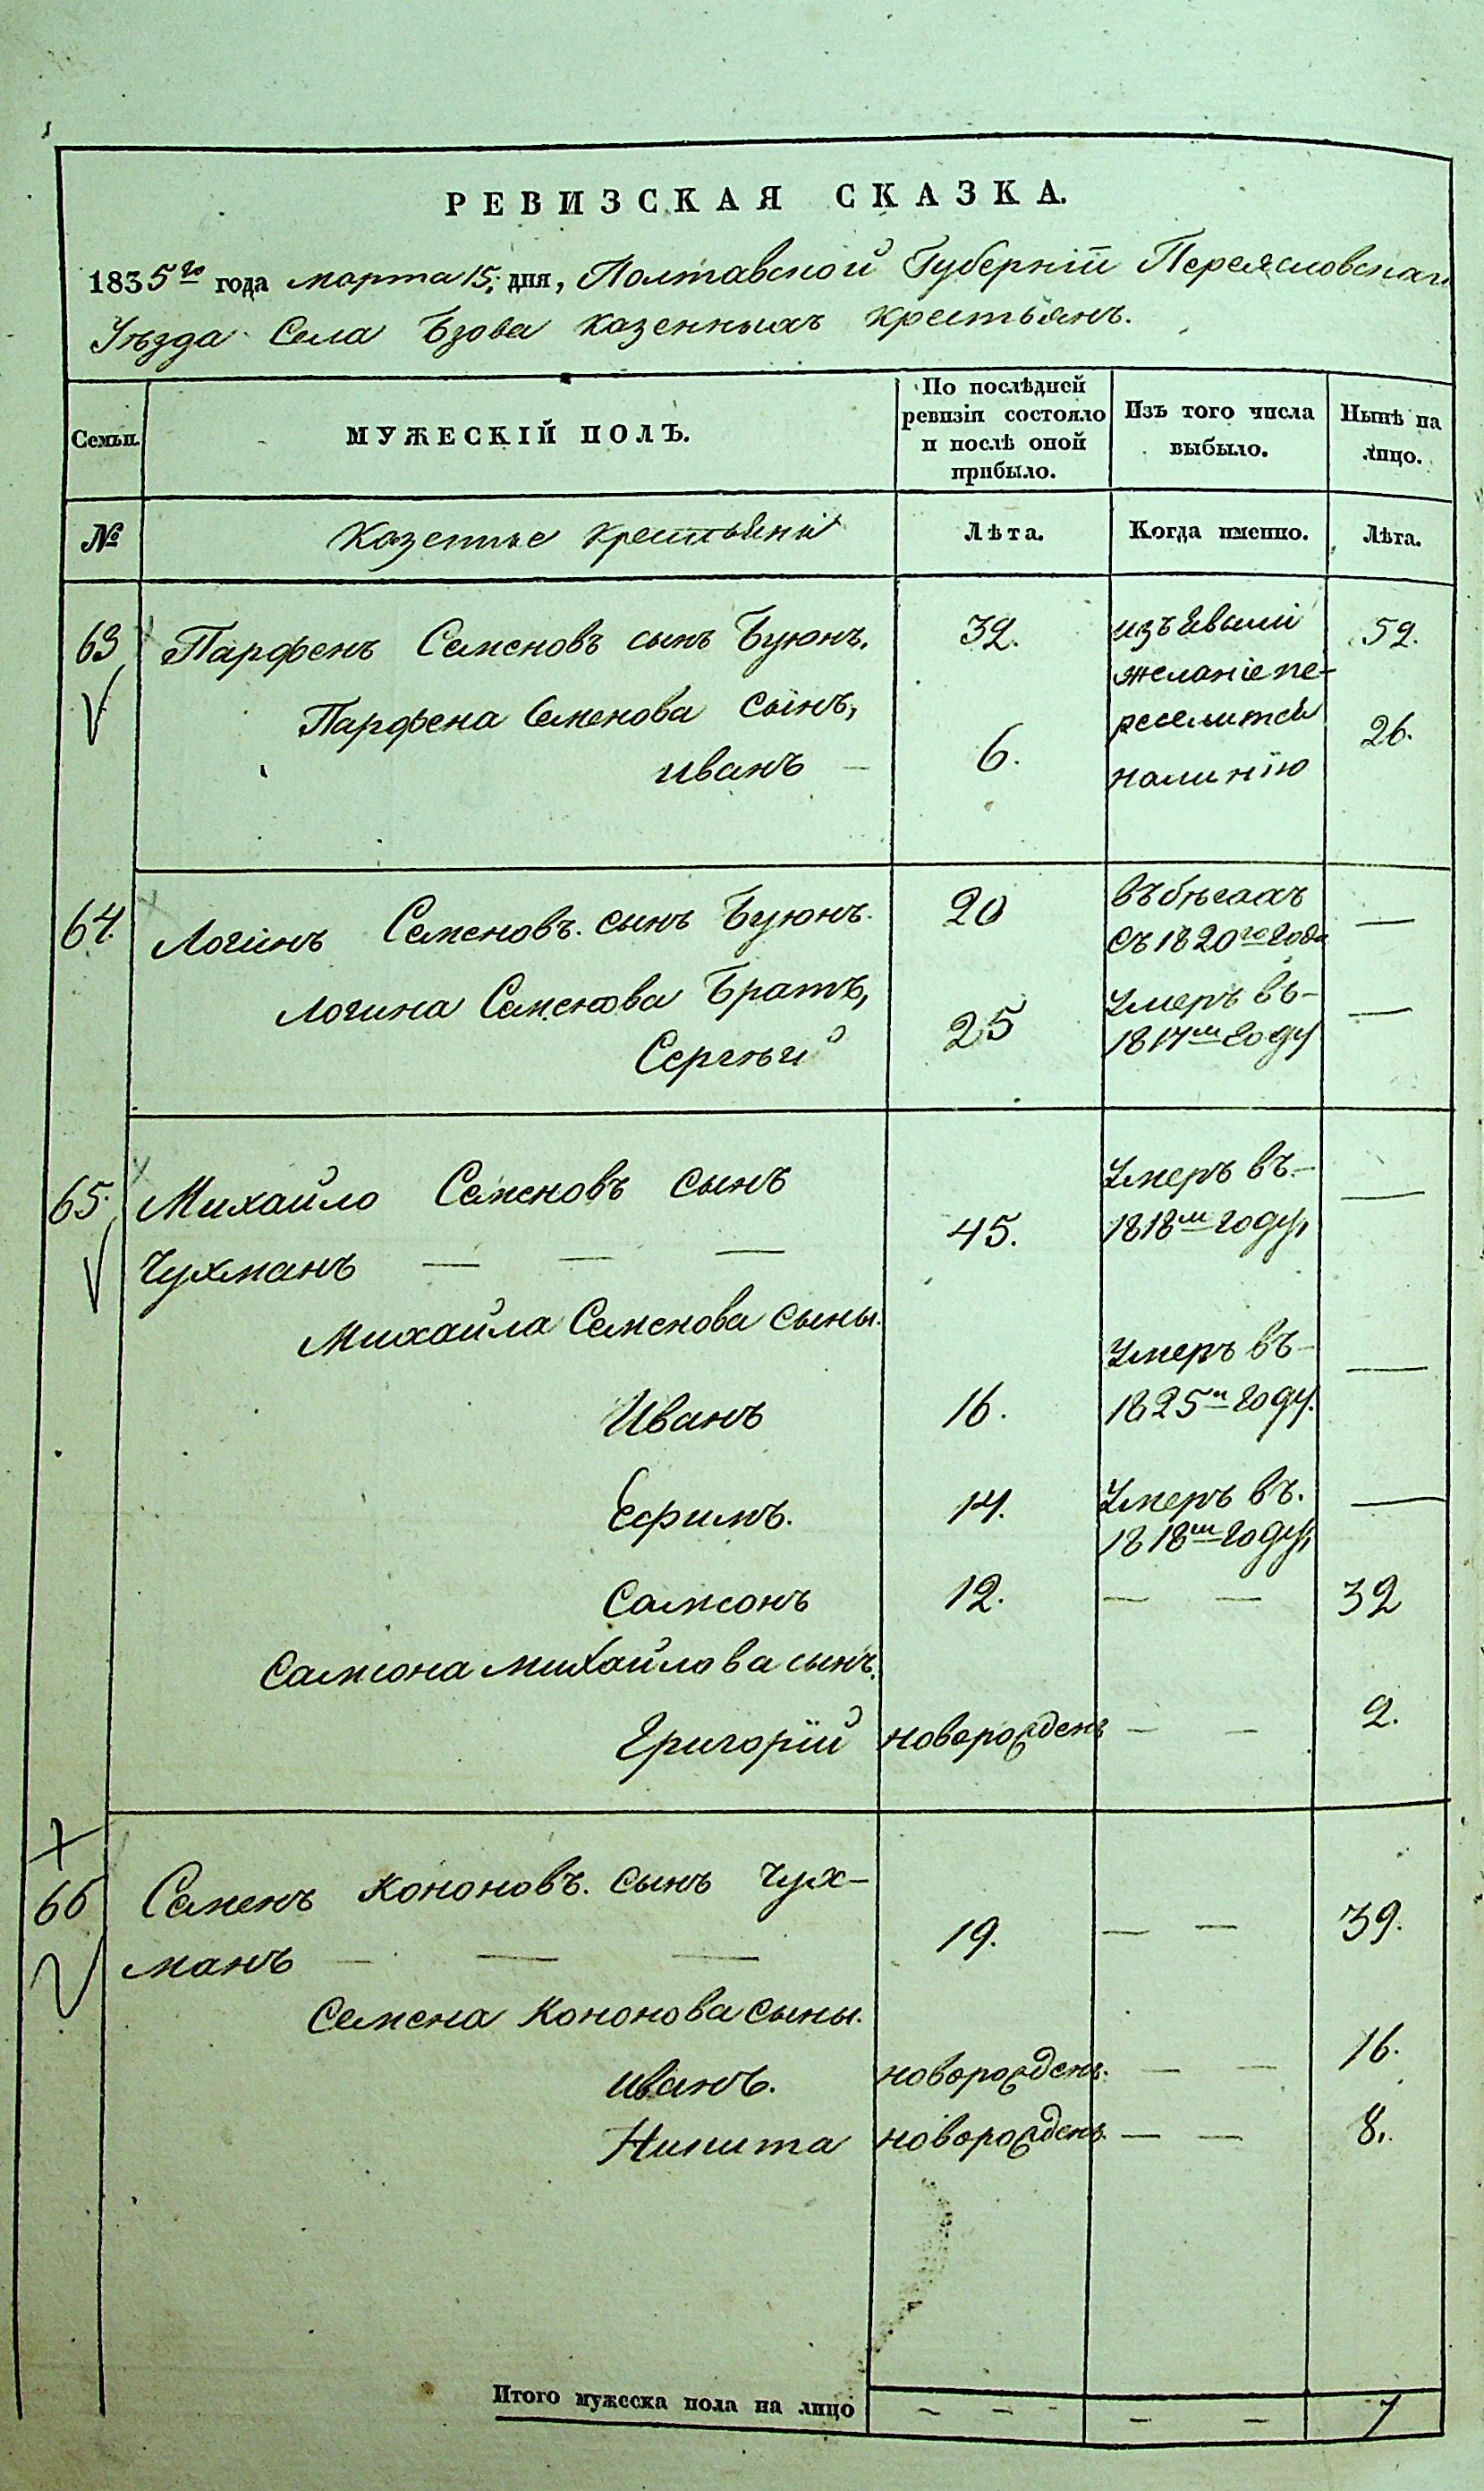 РЕВИЗСКАЯ СКАЗКА.
1835го года марта 15, дня, Полтавской Губерніи Переясловскаго
Уѣзда Села Бзова казенныхъ крестьянъ.
Семьи. МУЖЕСКІЙ ПОЛЪ. По послѣдней ревизіи состояло и послѣ оной прибыло. Изъ того числа выбыло. Нынѣ на лицо.
№ Казенные крестьяни Лѣта. Когда именно. Лѣта.
63 Парфенъ Семеновъ сынъ Буюнъ. 32. изъявили 52.
желаніе пе-
Парфена Семенова сынъ, реселится
Иванъ — 6. налинію 26.
64. Логинъ Семеновъ сынъ Буюнъ. 20 въ бѣгахъ —
съ 1820го года
Логина Семенова Братъ, Умеръ въ —
Сергѣй 25 1817м году
65. Михайло Семеновъ сынъ Умеръ въ —
Чухманъ — — — 45. 1818м году,
Михайла Семенова сыны.
Умеръ въ —
Иванъ 16. 1825м году.
Ефимъ. 14. Умеръ въ. —
1818м году,
Самсонъ 12. — — 32
Самсона Михайлова сынъ.
Григорій новорожденъ — — 2.
66 Семенъ Кононовъ. сынъ Чух-
манъ — — — 19. — — 39.
Семена Кононова сыны.
Иванъ. новорожденъ. — — 16.
Никита новорожденъ. — — 8.
Итого мужеска пола на лицо — — - — — 7